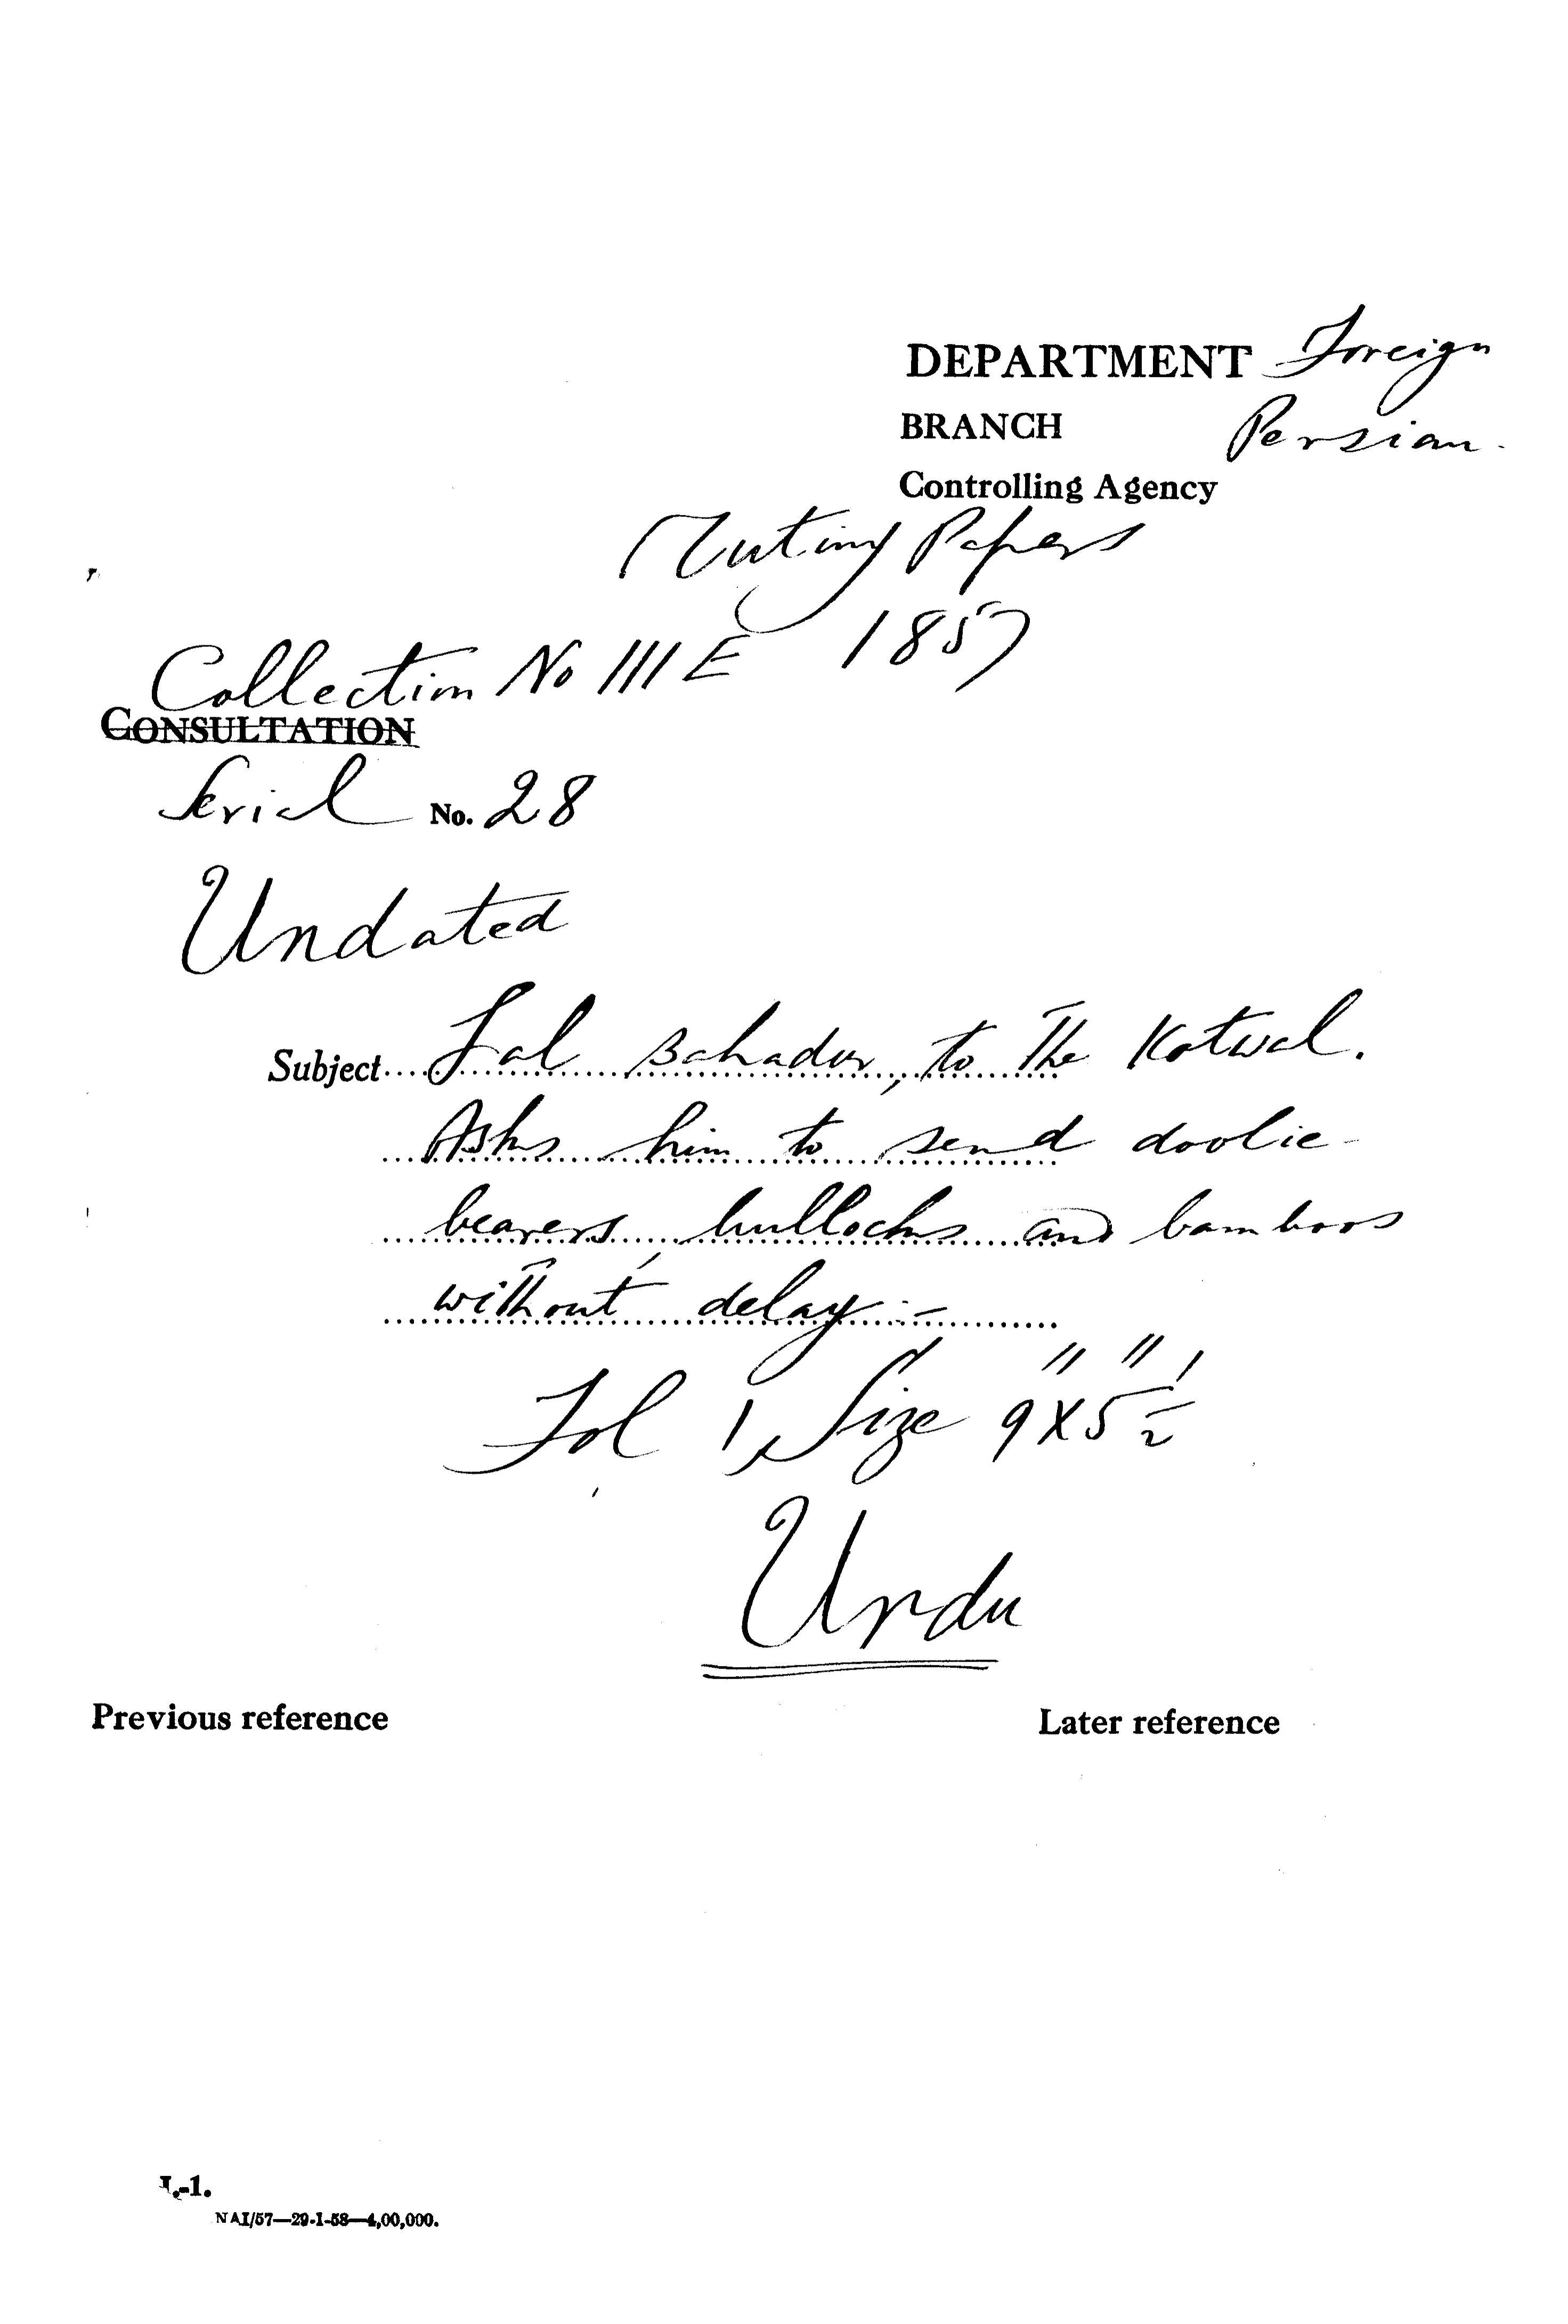 DEPARTMENT Foreign
BRANCH Persian.
Controlling Agency
Mutiny Papers
1857
Collection No III E
CONSULTATION
Serial No. 28
Undated
Subject.... Lal Bahadur, to The Kotwal.
Asks him to send doolie-
bearers, bullocks and bamboos
without delay :-
Fol 1, Size 9" X 5" 1/2
Urdu
Previous reference
Later reference
L-1.
NAI/57—29-1-58—4,00,000.